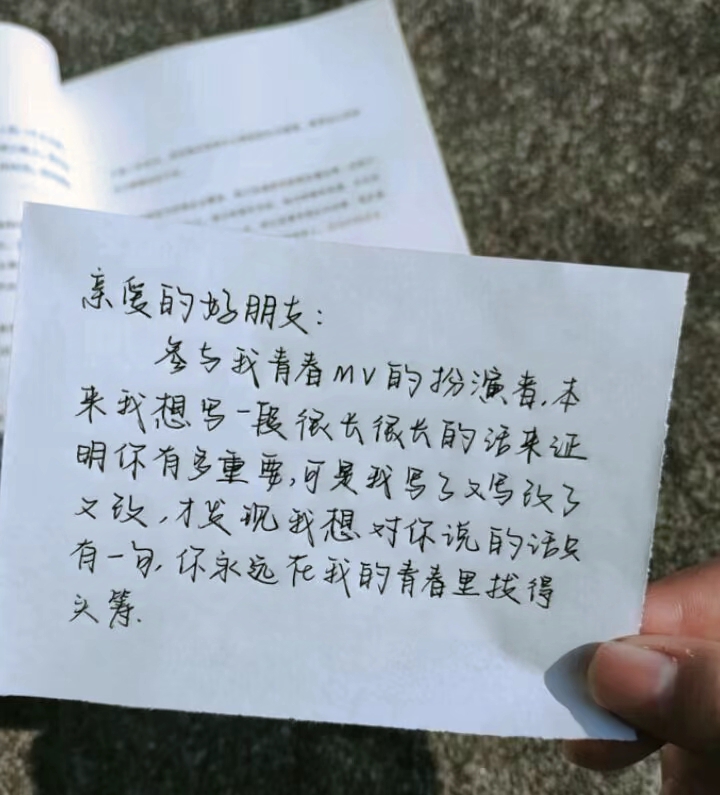 亲爱的好朋友:
参与我青春MV的扮演者,本
来我想写一段很长很长的话来证
明你有多重要,可是我写了又写改了
又改,才发现我想对你说的话只
有一句,你永远在我的青春里拔得
头筹.